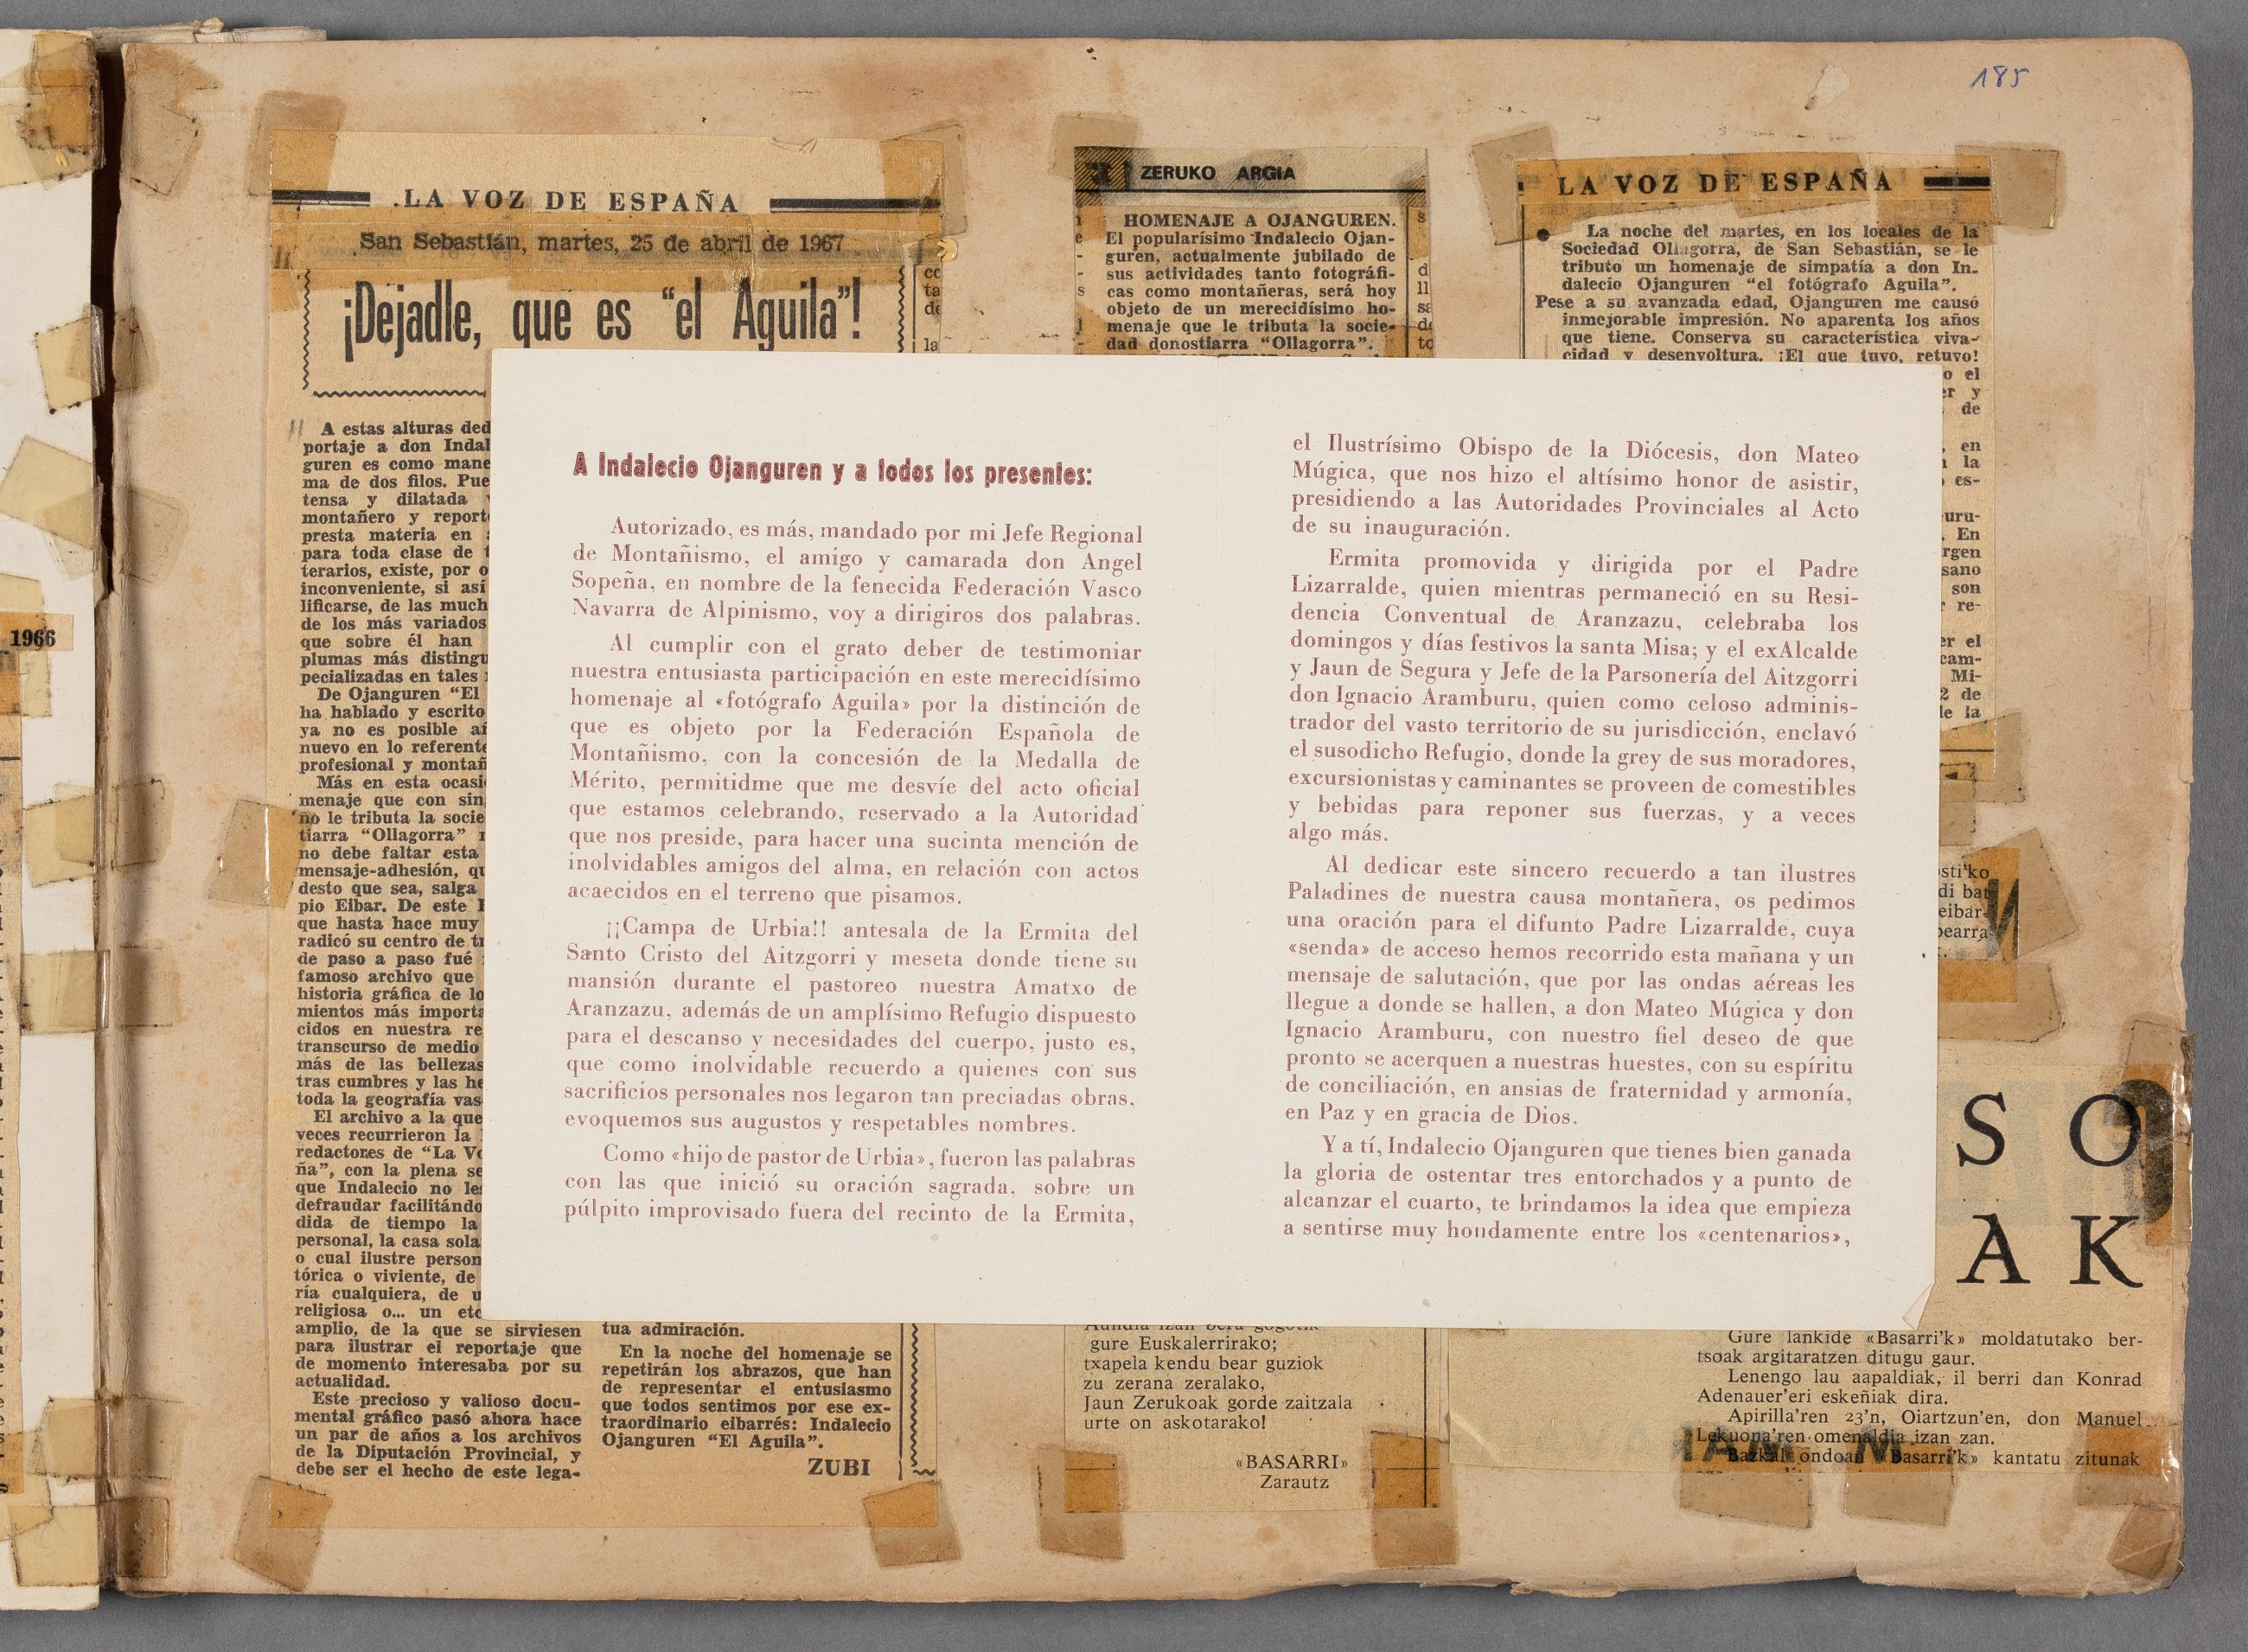 185
1966
LA VOZ DE ESPAÑA
San Sebastián, martes, 25 de abril de 1967
¡Dejadle, que es “el Aguila”!
A estas alturas ded
portaje a don Indal
guren es como mane
ma de dos filos. Pue
tensa y dilatada
montañero y report
presta materia en
para toda clase de
terarios, existe, por o
inconveniente, si así
lificarse, de las much
de los más variados
que sobre él han
plumas más distingu
pecializadas en tales
De Ojanguren “El
ha hablado y escrito
ya no es posible añ
nuevo en lo referente
profesional y montañ
Más en esta ocasi
menaje que con sin
no le tributa la socie
tiarra “Ollagorra”
no debe faltar esta
mensaje-adhesión, qu
desto que sea, salga
pio Eibar. De este
que hasta hace muy
radicó su centro de tr
de paso a paso fué
famoso archivo que
historia gráfica de lo
mientos más importa
cidos en nuestra re
transcurso de medio
más de las bellezas
tras cumbres y las he
toda la geografía vas
El archivo a la que
veces recurrieron la
redactores de “La Vo
ña”, con la plena se
que Indalecio no les
defraudar facilitándo
dida de tiempo la
personal, la casa sola
o cual ilustre person
tórica o viviente, de
ría cualquiera, de u
religiosa o... un etc
amplio, de la que se sirviesen
para ilustrar el reportaje que
de momento interesaba por su
actualidad.
Este precioso y valioso docu-
mental gráfico pasó ahora hace
un par de años a los archivos
de la Diputación Provincial, y
debe ser el hecho de este lega-
tua admiración.
En la noche del homenaje se
repetirán los abrazos, que han
de representar el entusiasmo
que todos sentimos por ese ex-
traordinario eibarrés: Indalecio
Ojanguren “El Aguila”.
ZUBI
ZERUKO ARGIA
HOMENAJE A OJANGUREN.
El popularísimo Indalecio Ojan-
guren, actualmente jubilado de
sus actividades tanto fotográfi-
cas como montañeras, será hoy
objeto de un merecidísimo ho-
menaje que le tributa la socie-
dad donostiarra “Ollagorra”.
LA VOZ DE ESPAÑA
La noche del martes, en los locales de la
Sociedad Ollagorra, de San Sebastián, se le
tributo un homenaje de simpatía a don In-
dalecio Ojanguren “el fotógrafo Aguila”.
Pese a su avanzada edad, Ojanguren me causó
inmejorable impresión. No aparenta los años
que tiene. Conserva su característica viva-
cidad y desenvoltura. ¡El que tuvo, retuvo!
o el
er y
de
en
la
es-
uru-
En
rgen
sano
son
re-
er el
cam-
Mi-
2 de
de la
A Indalecio Ojanguren y a todos los presentes:
Autorizado, es más, mandado por mi Jefe Regional
de Montañismo, el amigo y camarada don Angel
Sopeña, en nombre de la fenecida Federación Vasco
Navarra de Alpinismo, voy a dirigiros dos palabras.
Al cumplir con el grato deber de testimoniar
nuestra entusiasta participación en este merecidísimo
homenaje al «fotógrafo Aguila» por la distinción de
que es objeto por la Federación Española de
Montañismo, con la concesión de la Medalla de
Mérito, permitidme que me desvíe del acto oficial
que estamos celebrando, reservado a la Autoridad
que nos preside, para hacer una sucinta mención de
inolvidables amigos del alma, en relación con actos
acaecidos en el terreno que pisamos.
¡¡Campa de Urbia!! antesala de la Ermita del
Santo Cristo del Aitzgorri y meseta donde tiene su
mansión durante el pastoreo nuestra Amatxo de
Aranzazu, además de un amplísimo Refugio dispuesto
para el descanso y necesidades del cuerpo, justo es,
que como inolvidable recuerdo a quienes con sus
sacrificios personales nos legaron tan preciadas obras,
evoquemos sus augustos y respetables nombres.
Como «hijo de pastor de Urbia», fueron las palabras
con las que inició su oración sagrada, sobre un
púlpito improvisado fuera del recinto de la Ermita,
el Ilustrísimo Obispo de la Diócesis, don Mateo
Múgica, que nos hizo el altísimo honor de asistir,
presidiendo a las Autoridades Provinciales al Acto
de su inauguración.
Ermita promovida y dirigida por el Padre
Lizarralde, quien mientras permaneció en su Resi-
dencia Conventual de Aranzazu, celebraba los
domingos y días festivos la santa Misa; y el exAlcalde
y Jaun de Segura y Jefe de la Parsonería del Aitzgorri
don Ignacio Aramburu, quien como celoso adminis-
trador del vasto territorio de su jurisdicción, enclavó
el susodicho Refugio, donde la grey de sus moradores,
excursionistas y caminantes se proveen de comestibles
y bebidas para reponer sus fuerzas, y a veces
algo más.
Al dedicar este sincero recuerdo a tan ilustres
Paladines de nuestra causa montañera, os pedimos
una oración para el difunto Padre Lizarralde, cuya
«senda» de acceso hemos recorrido esta mañana y un
mensaje de salutación, que por las ondas aéreas les
llegue a donde se hallen, a don Mateo Múgica y don
Ignacio Aramburu, con nuestro fiel deseo de que
pronto se acerquen a nuestras huestes, con su espíritu
de conciliación, en ansias de fraternidad y armonía,
en Paz y en gracia de Dios.
Y a tí, Indalecio Ojanguren que tienes bien ganada
la gloria de ostentar tres entorchados y a punto de
alcanzar el cuarto, te brindamos la idea que empieza
a sentirse muy hondamente entre los «centenarios»,
osti'ko
di bat
eibar-
bearra
gure Euskalerrirako;
txapela kendu bear guziok
zu zerana zeralako,
Jaun Zerukoak gorde zaitzala
urte on askotarako!
«BASARRI»
Zarautz
S O
A K
Gure lankide «Basarri'k» moldatutako ber-
tsoak argitaratzen ditugu gaur.
Lenengo lau aapaldiak, il berri dan Konrad
Adenauer'eri eskeñiak dira.
Apirilla'ren 23'n, Oiartzun'en, don Manuel
Lekuona'ren omenaldia izan zan.
Bazkal ondoan «Basarri'k» kantatu zitunak